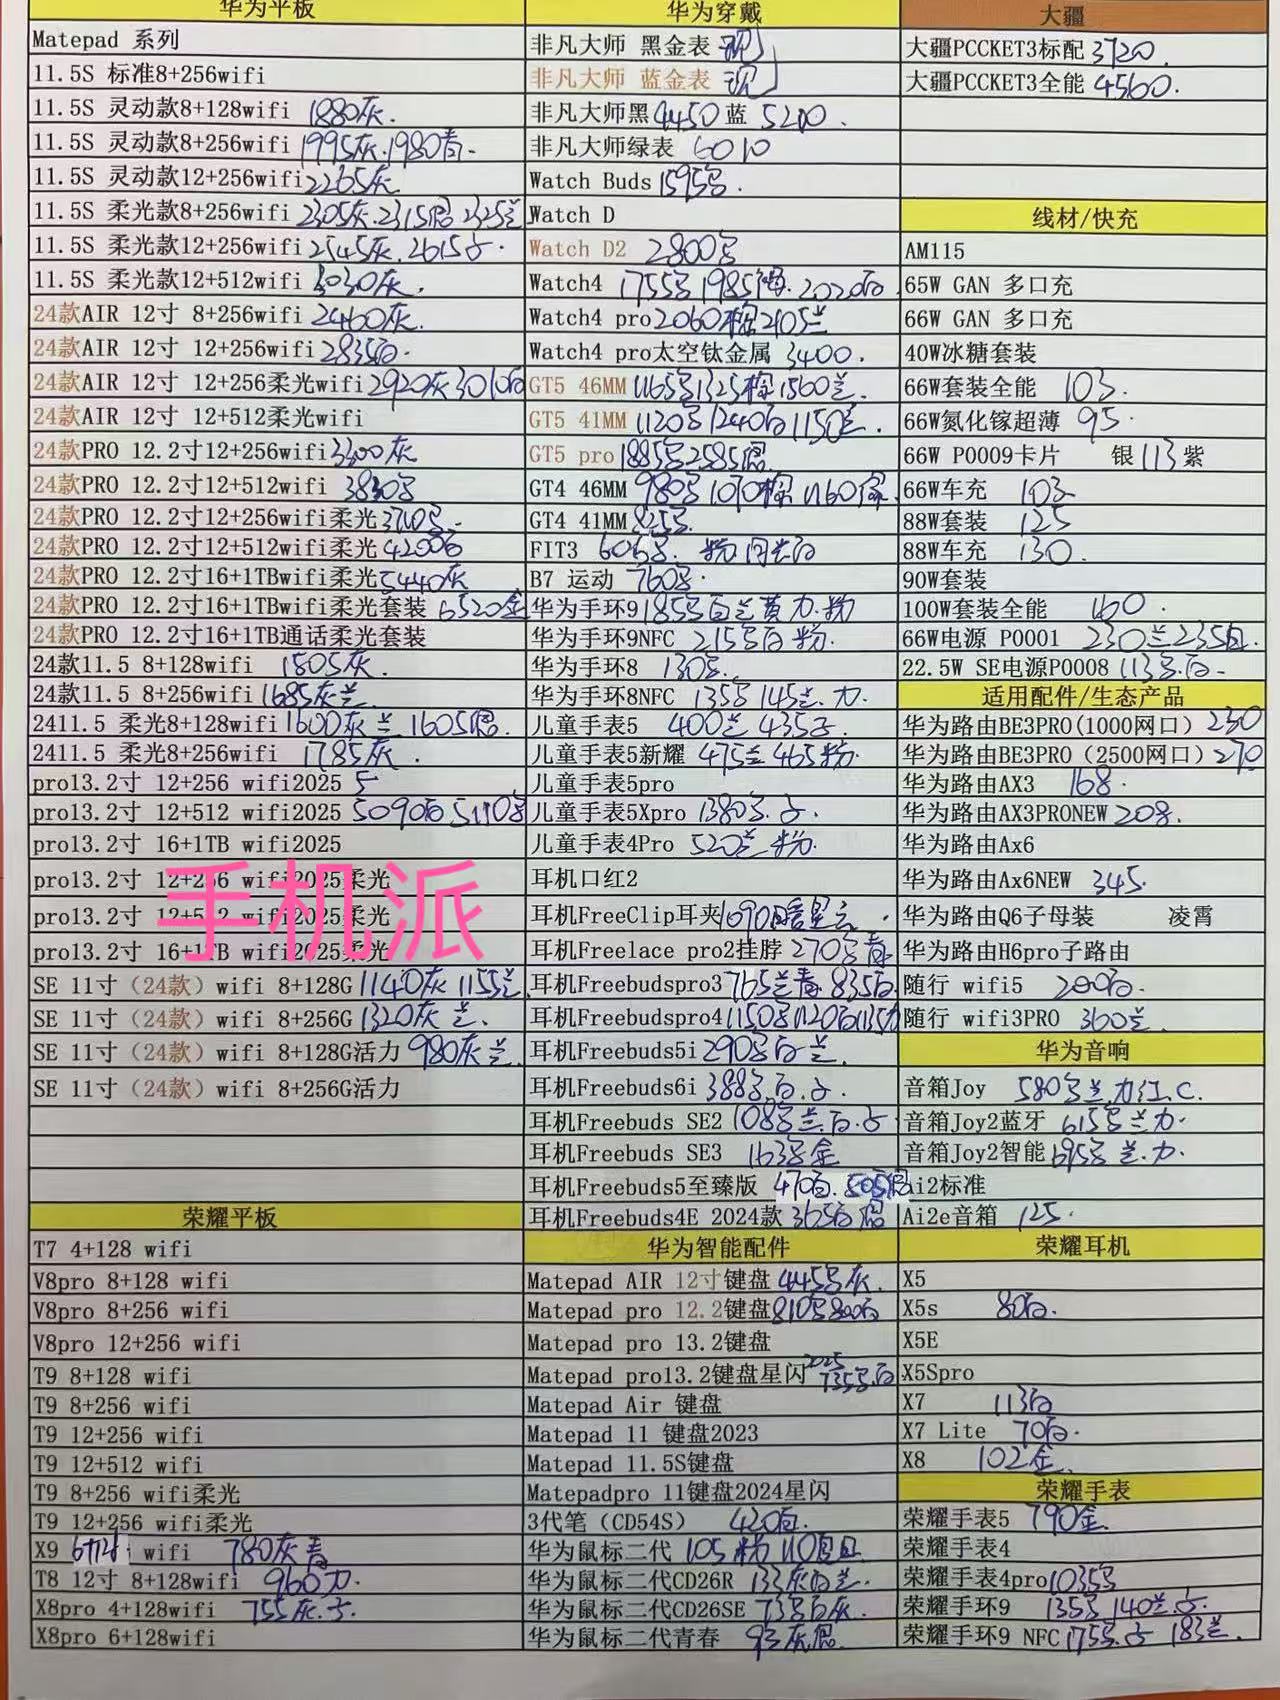 华为平板
Matepad 系列
11.5S 标准8+256wifi
11.5S 灵动款8+128wifi 1880灰.
11.5S 灵动款8+256wifi 1995灰.1980青.
11.5S 灵动款12+256wifi 2265灰
11.5S 柔光款8+256wifi 2305灰.2315 2325兰
11.5S 柔光款12+256wifi 2545灰.2615
11.5S 柔光款12+512wifi 3030灰.
24款AIR 12寸 8+256wifi 2460灰.
24款AIR 12寸 12+256wifi 2835白.
24款AIR 12寸 12+256柔光wifi 2920灰 3010白
24款AIR 12寸 12+512柔光wifi
24款PRO 12.2寸12+256wifi 3300灰
24款PRO 12.2寸12+512wifi 3830
24款PRO 12.2寸12+256wifi柔光
24款PRO 12.2寸12+512wifi柔光 4200白
24款PRO 12.2寸16+1TBwifi柔光 5440灰
24款PRO 12.2寸16+1TBwifi柔光套装 6520金
24款PRO 12.2寸16+1TB通话柔光套装
24款11.5 8+128wifi 1505灰.
24款11.5 8+256wifi 1685灰兰
2411.5 柔光8+128wifi 1600灰 兰 1605
2411.5 柔光8+256wifi 1785灰.
pro13.2寸 12+256 wifi2025
pro13.2寸 12+512 wifi2025 5090白 5110
pro13.2寸 16+1TB wifi2025
pro13.2寸 12+256 wifi2025柔光
pro13.2寸 12+512 wifi2025柔光
pro13.2寸 16+1TB wifi2025柔光
手机派
SE 11寸（24款）wifi 8+128G 1140灰 1155兰
SE 11寸（24款）wifi 8+256G 1320灰 兰.
SE 11寸（24款）wifi 8+128G活力 980灰 兰.
SE 11寸（24款）wifi 8+256G活力
荣耀平板
T7 4+128 wifi
V8pro 8+128 wifi
V8pro 8+256 wifi
V8pro 12+256 wifi
T9 8+128 wifi
T9 8+256 wifi
T9 12+256 wifi
T9 12+512 wifi
T9 8+256 wifi柔光
T9 12+256 wifi柔光
X9 wifi 780灰青
T8 12寸 8+128wifi 960力.
X8pro 4+128wifi 755灰.
X8pro 6+128wifi
华为穿戴
非凡大师 黑金表 现
非凡大师 蓝金表 现
非凡大师黑 4450 蓝 5200.
非凡大师绿表 6010
Watch Buds 1595
Watch D
Watch D2 2800
Watch4 1755 1985 2020白
Watch4 pro 2060棕 2105兰
Watch4 pro太空钛金属 3400.
GT5 46MM 1165 1325棕 1560兰.
GT5 41MM 1120 1240白 1150兰.
GT5 pro 1885 2585
GT4 46MM 980 1070棕 1160
GT4 41MM 825
FIT3 606 粉 白
B7 运动 760
华为手环9 185 白兰黄力.粉
华为手环9NFC 215 白粉.
华为手环8 130
华为手环8NFC 135 145兰.力.
儿童手表5 400兰 435
儿童手表5新耀 475兰 465粉.
儿童手表5pro
儿童手表5Xpro 1380
儿童手表4Pro 520兰 粉.
耳机口红2
耳机FreeClip耳夹 1090白
耳机Freelace pro2挂脖 270 青
耳机Freebudspro3 765兰青.835白.
耳机Freebudspro4 1150 1120白
耳机Freebuds5i 290 白兰.
耳机Freebuds6i 388 白.
耳机Freebuds SE2 108 兰.白.
耳机Freebuds SE3 163 金
耳机Freebuds5至臻版 470白.505
耳机Freebuds4E 2024款 365白
华为智能配件
Matepad AIR 12寸键盘 445 灰.
Matepad pro 12.2键盘 810 800白
Matepad pro 13.2键盘
Matepad pro13.2键盘星闪 2025 735 白
Matepad Air 键盘
Matepad 11 键盘2023
Matepad 11.5S键盘
Matepadpro 11键盘2024星闪
3代笔（CD54S） 420白.
华为鼠标二代 105粉 110
华为鼠标二代CD26R 133灰白兰.
华为鼠标二代CD26SE 73 白灰.
华为鼠标二代青春 93灰
大疆
大疆PCCKET3标配 3720.
大疆PCCKET3全能 4560.
线材/快充
AM115
65W GAN 多口充
66W GAN 多口充
40W冰糖套装
66W套装全能 103.
66W氮化镓超薄 95.
66W P0009卡片 银 113 紫
66W车充 103
88W套装 125
88W车充 130.
90W套装
100W套装全能 160.
66W电源 P0001 230兰 235
22.5W SE电源P0008 113 白.
适用配件/生态产品
华为路由BE3PRO(1000网口) 230
华为路由BE3PRO（2500网口）270
华为路由AX3 168.
华为路由AX3PRONEW 208.
华为路由Ax6
华为路由Ax6NEW 345.
华为路由Q6子母装 凌霄
华为路由H6pro子路由
随行 wifi5 200白.
随行 wifi3PRO 360兰.
华为音响
音箱Joy 580 兰.力红.C.
音箱Joy2蓝牙 615 兰力.
音箱Joy2智能 695 兰.力.
Ai2标准
Ai2e音箱 125.
荣耀耳机
X5
X5s 80白.
X5E
X5Spro
X7 113白
X7 Lite 70白.
X8 102金.
荣耀手表
荣耀手表5 790金
荣耀手表4
荣耀手表4pro 1035
荣耀手环9 135 140兰.
荣耀手环9 NFC 175 183兰.